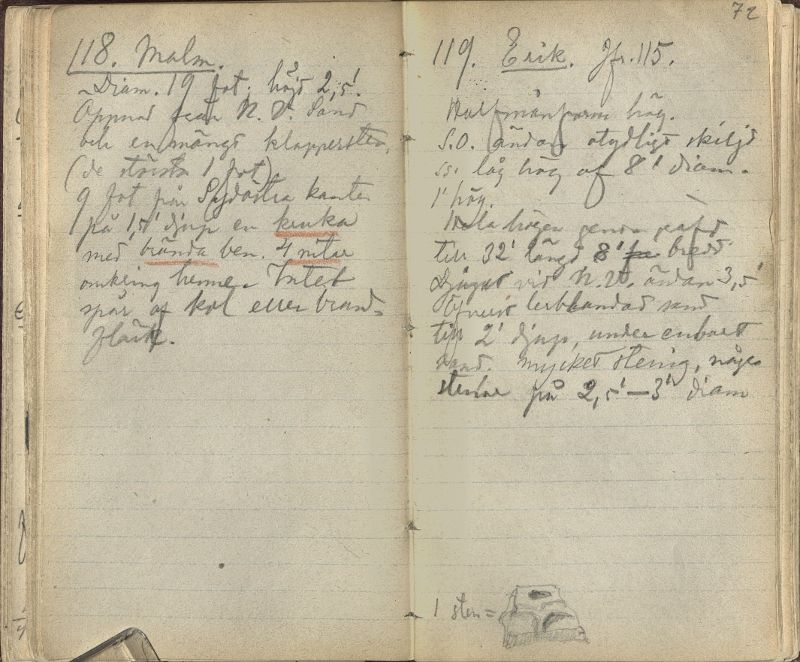 118. Malm.
Diam. 19 fot, höjd 2,5'.
Öppnad från N.V. Sand
och en mängd klappersten
(de största 1 fot)
9 fot från Sydöstra kanten
på 1,5' djup en kruka
med brända ben. 4 nitar
omkring henne. Intet
spår af kol eller brand-
fläck.
72
119. Erik. Jfr. 115.
Halfmånform hög.
S.O. ändan otydligt skiljd
ss. låg hög af 8' diam.
1' hög.
Hela högen genomgräfd
till 32' längd 8' bredd
Djupast vid N.V. ändan 3,5'
Öfverst lerblandad sand
till 2' djup, under enbart
sand. Mycket stenig, några
stenar på 2,5'—3' diam
1 sten =